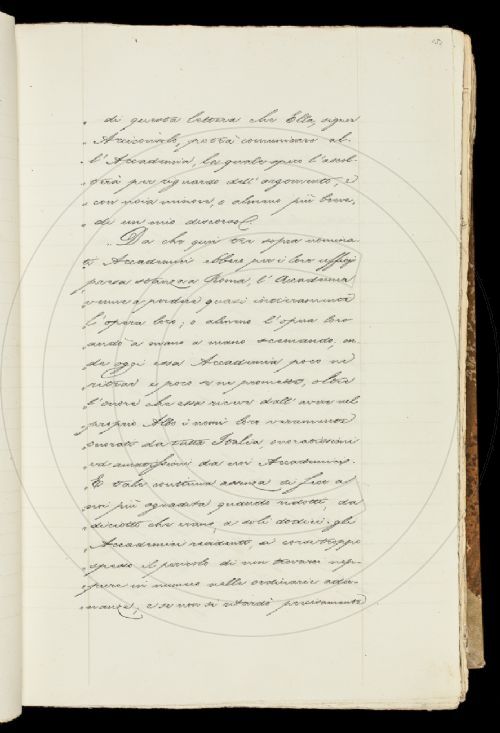 di questa lettera che Ella, signor
potrà comunicare al-
l'Accademia, la quale spero l'ascol-
terà per riguardo dell'argomento, e
con noia minore, o almeno più breve,
di un mio discorso.
Da che quei tre sopra nomina-
ti Accademici ebbero per i loro uffici
persa stanza a Roma, l'Accademia
venne a perdere quasi intieramente
l'opera loro; o almeno l'opera loro
andò a mano a mano scemando, on-
de oggi essa Accademia poco ne
ritrae e poco se ne promette, oltre
l'onore che essa riceve dall'aver nel
proprio Albo i nomi loro veramente
onorati da tutta Italia, onoratissimi
ed amatissimi da noi Accademici.
E tale continua assenza di
più agguardata quando ridotti, da
diciotto che erano, a soli dodici gli
Accademici residenti, si corse troppo
spesso il pericolo di non trovarsi nep-
pure in numero nelle ordinarie adu-
nanze, e se non si ritardò precisamente